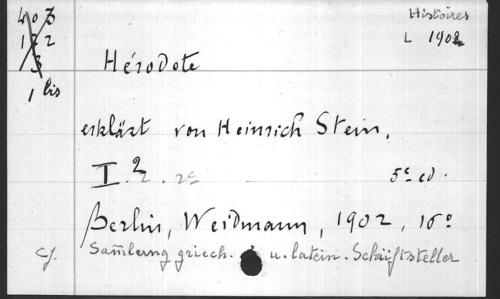 403
122
3
1 bis
Histoires
L 1902
Hérodote
erklärt von Heinrich Stein,
I. 2. 2e 5e ed.
Berlin, Weidmann, 1902, 16°
cf. Sam̄lung griech. u. latein. Schriftsteller